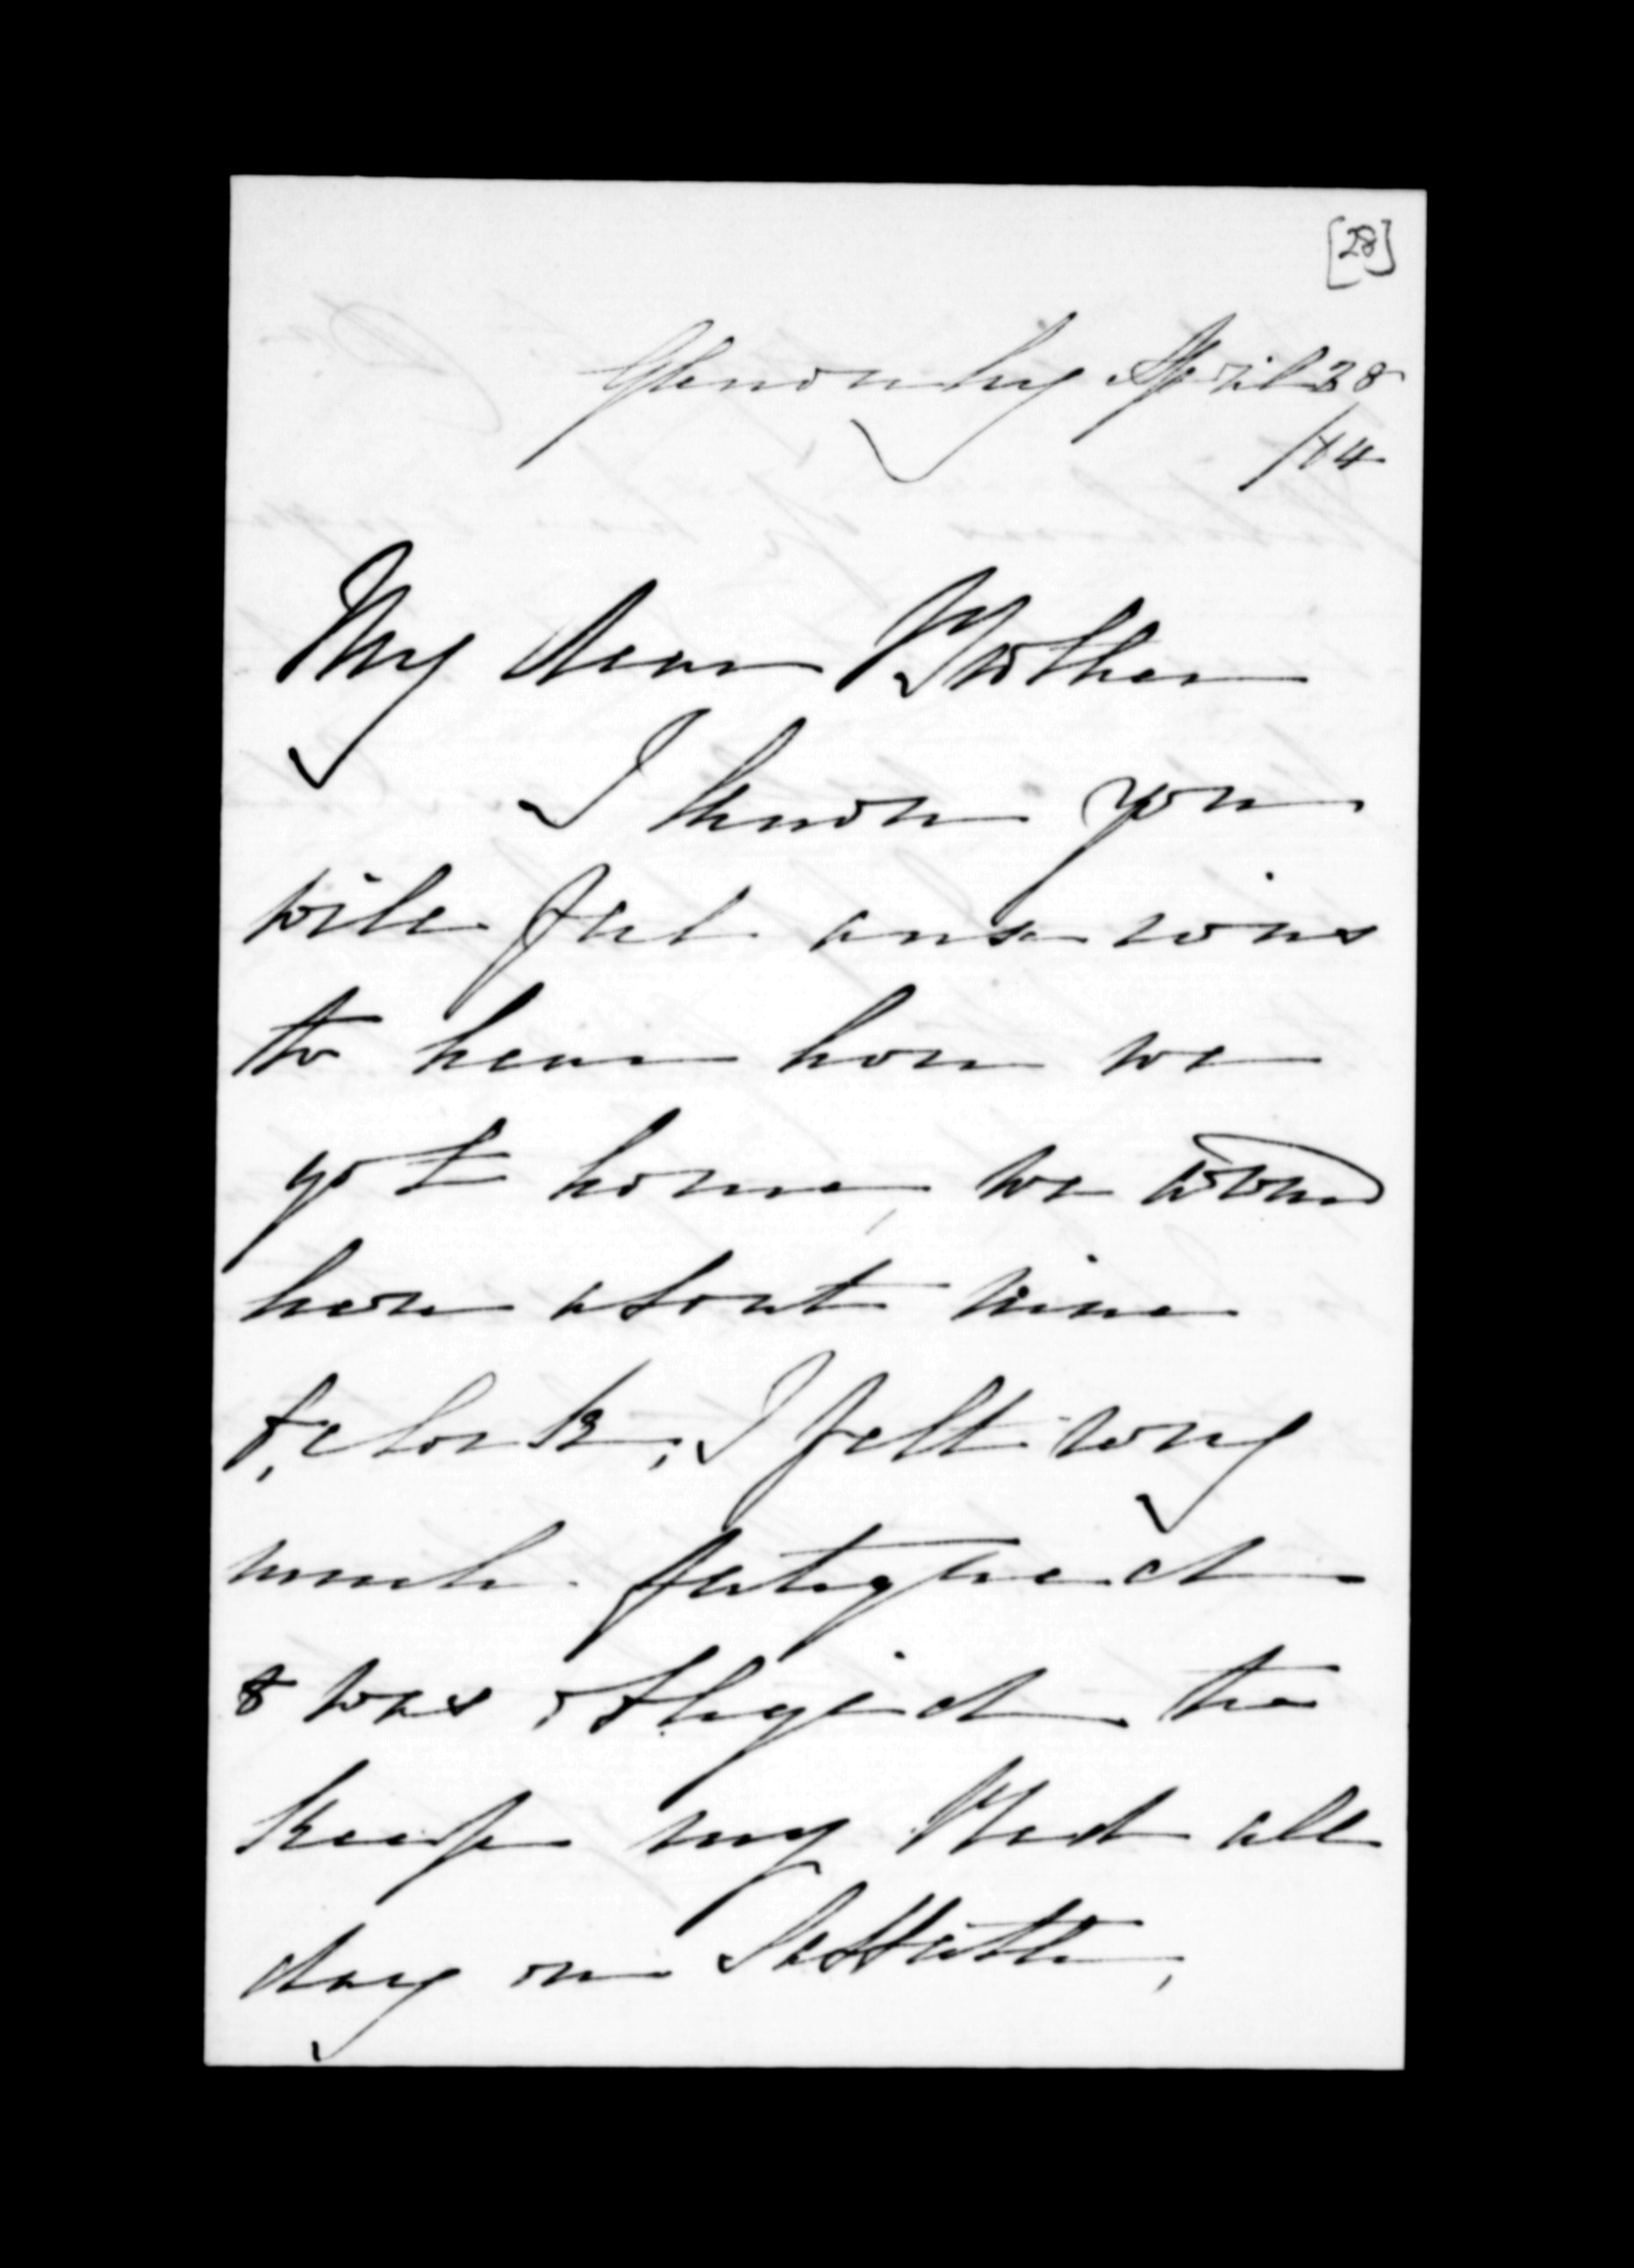 [28]
Glenorchy April 28
/84
My dear Brother
I know you
will feel anxious
to hear how we
got home, we
here about nine
o,clock, I felt very
much fatigued
& was obliged to
keep my Bed all
day on Sabbath,